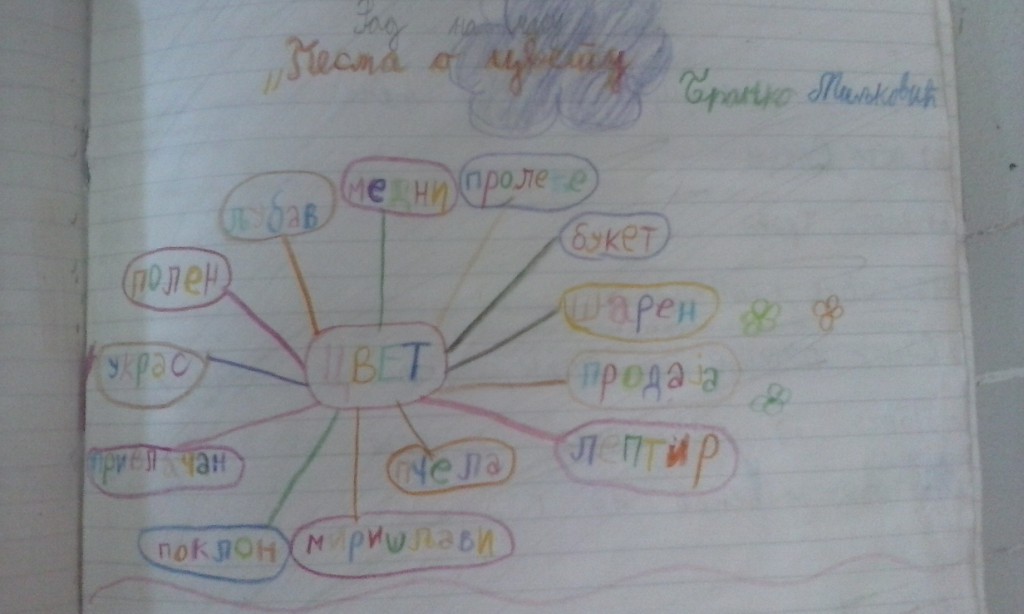 Рад на часу
„Песма о цвету
Бранко Миљковић
љубав
медни
пролеће
букет
полен
шарен
ЦВЕТ
украс
продаја
лептир
привлачан
пчела
поклон
миришљави